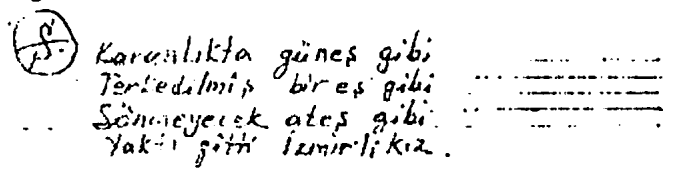 Ş.
Karanlıkta güneş gibi
Terkedilmiş bir eş gibi
Sönmeyecek ateş gibi
Yaktı gitti İzmirli kız.